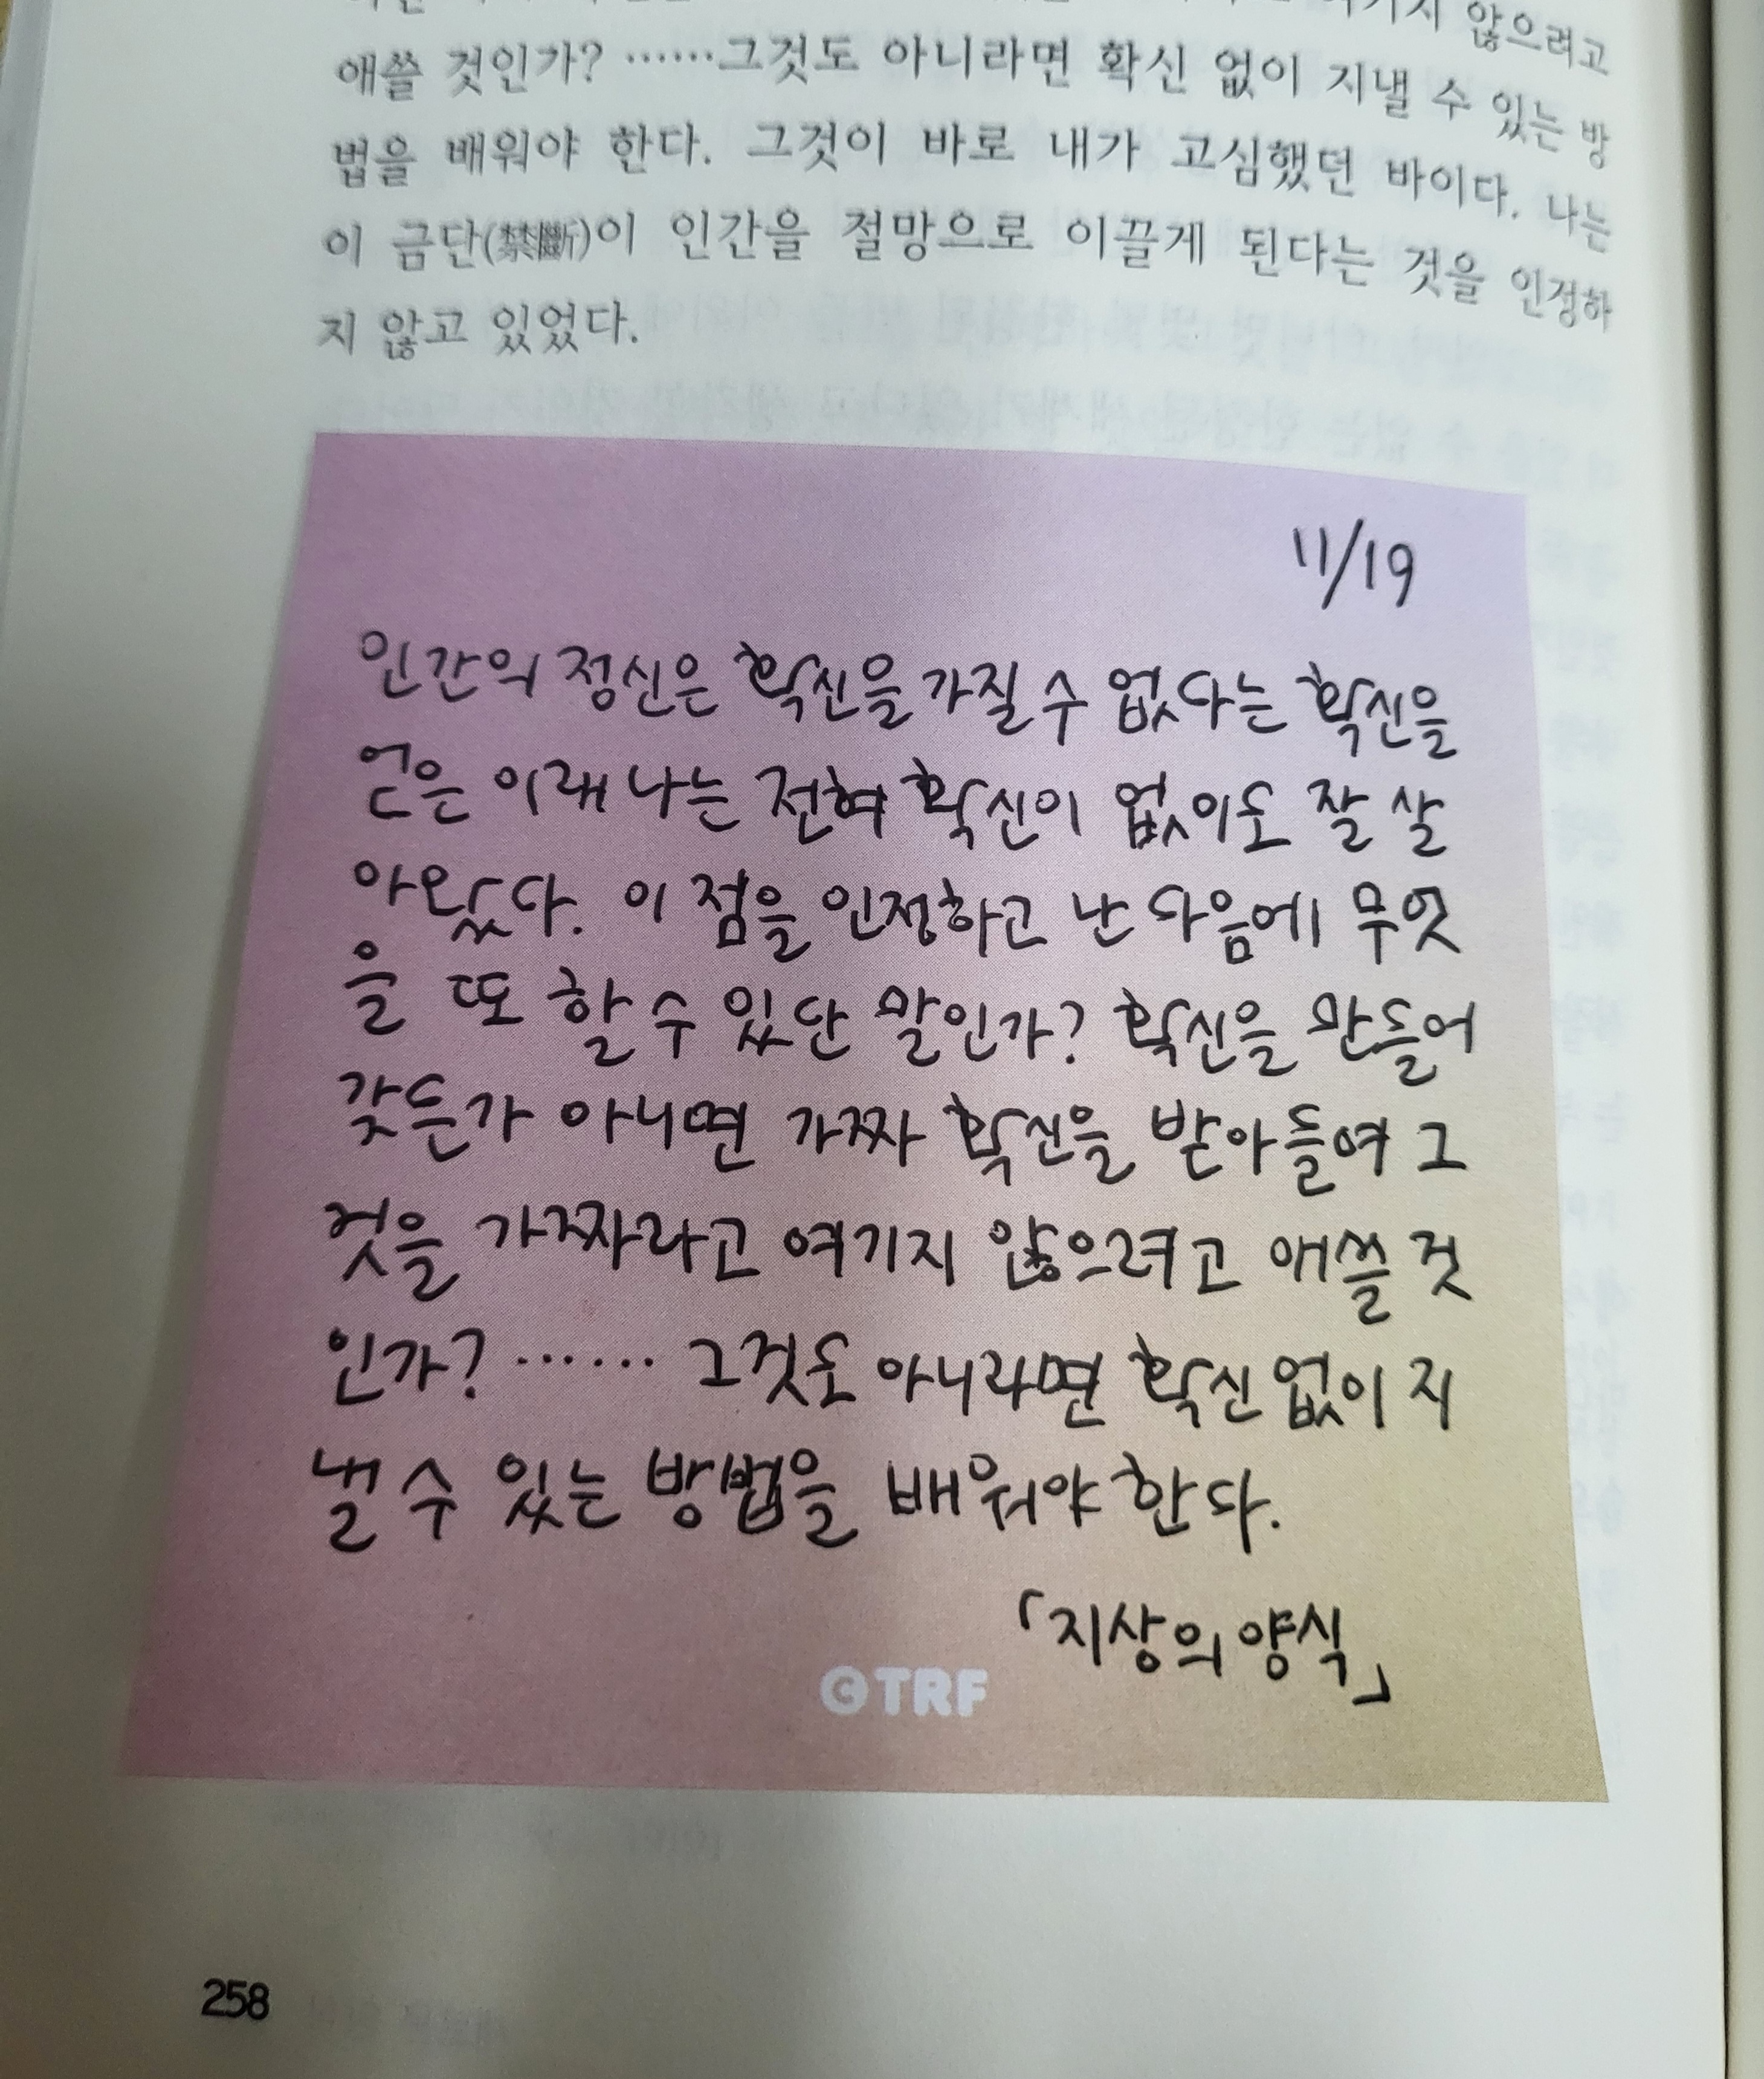 여기지 않으려고
애쓸 것인가? ……그것도 아니라면 확신 없이 지낼 수 있는 방
법을 배워야 한다. 그것이 바로 내가 고심했던 바이다. 나는
이 금단(禁斷)이 인간을 절망으로 이끌게 된다는 것을 인정하
지 않고 있었다.
11/19
인간의 정신은 확신을 가질 수 없다는 확신을
얻은 이래 나는 전혀 확신이 없이도 잘 살
아왔다. 이 점을 인정하고 난 다음에 무엇
을 또 할 수 있단 말인가? 확신을 만들어
갖든가 아니면 가짜 확신을 받아들여 그
것을 가짜라고 여기지 않으려고 애쓸 것
인가? …… 그것도 아니라면 확신 없이 지
낼 수 있는 방법을 배워야 한다.
「지상의 양식」
©TRF
258